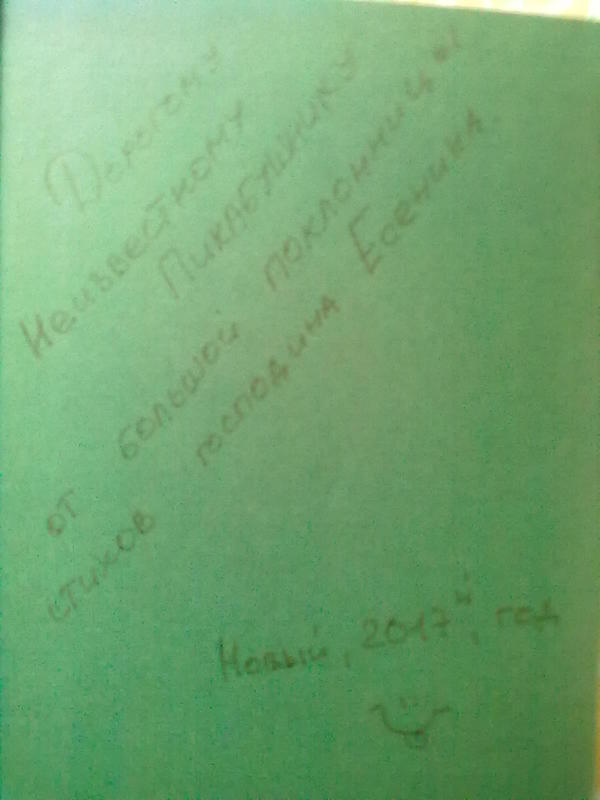 Дорогому
Неизвестному
Пикабушнику
от большой поклонницы
стихов господина Есенина.
Новый, 2017й, год